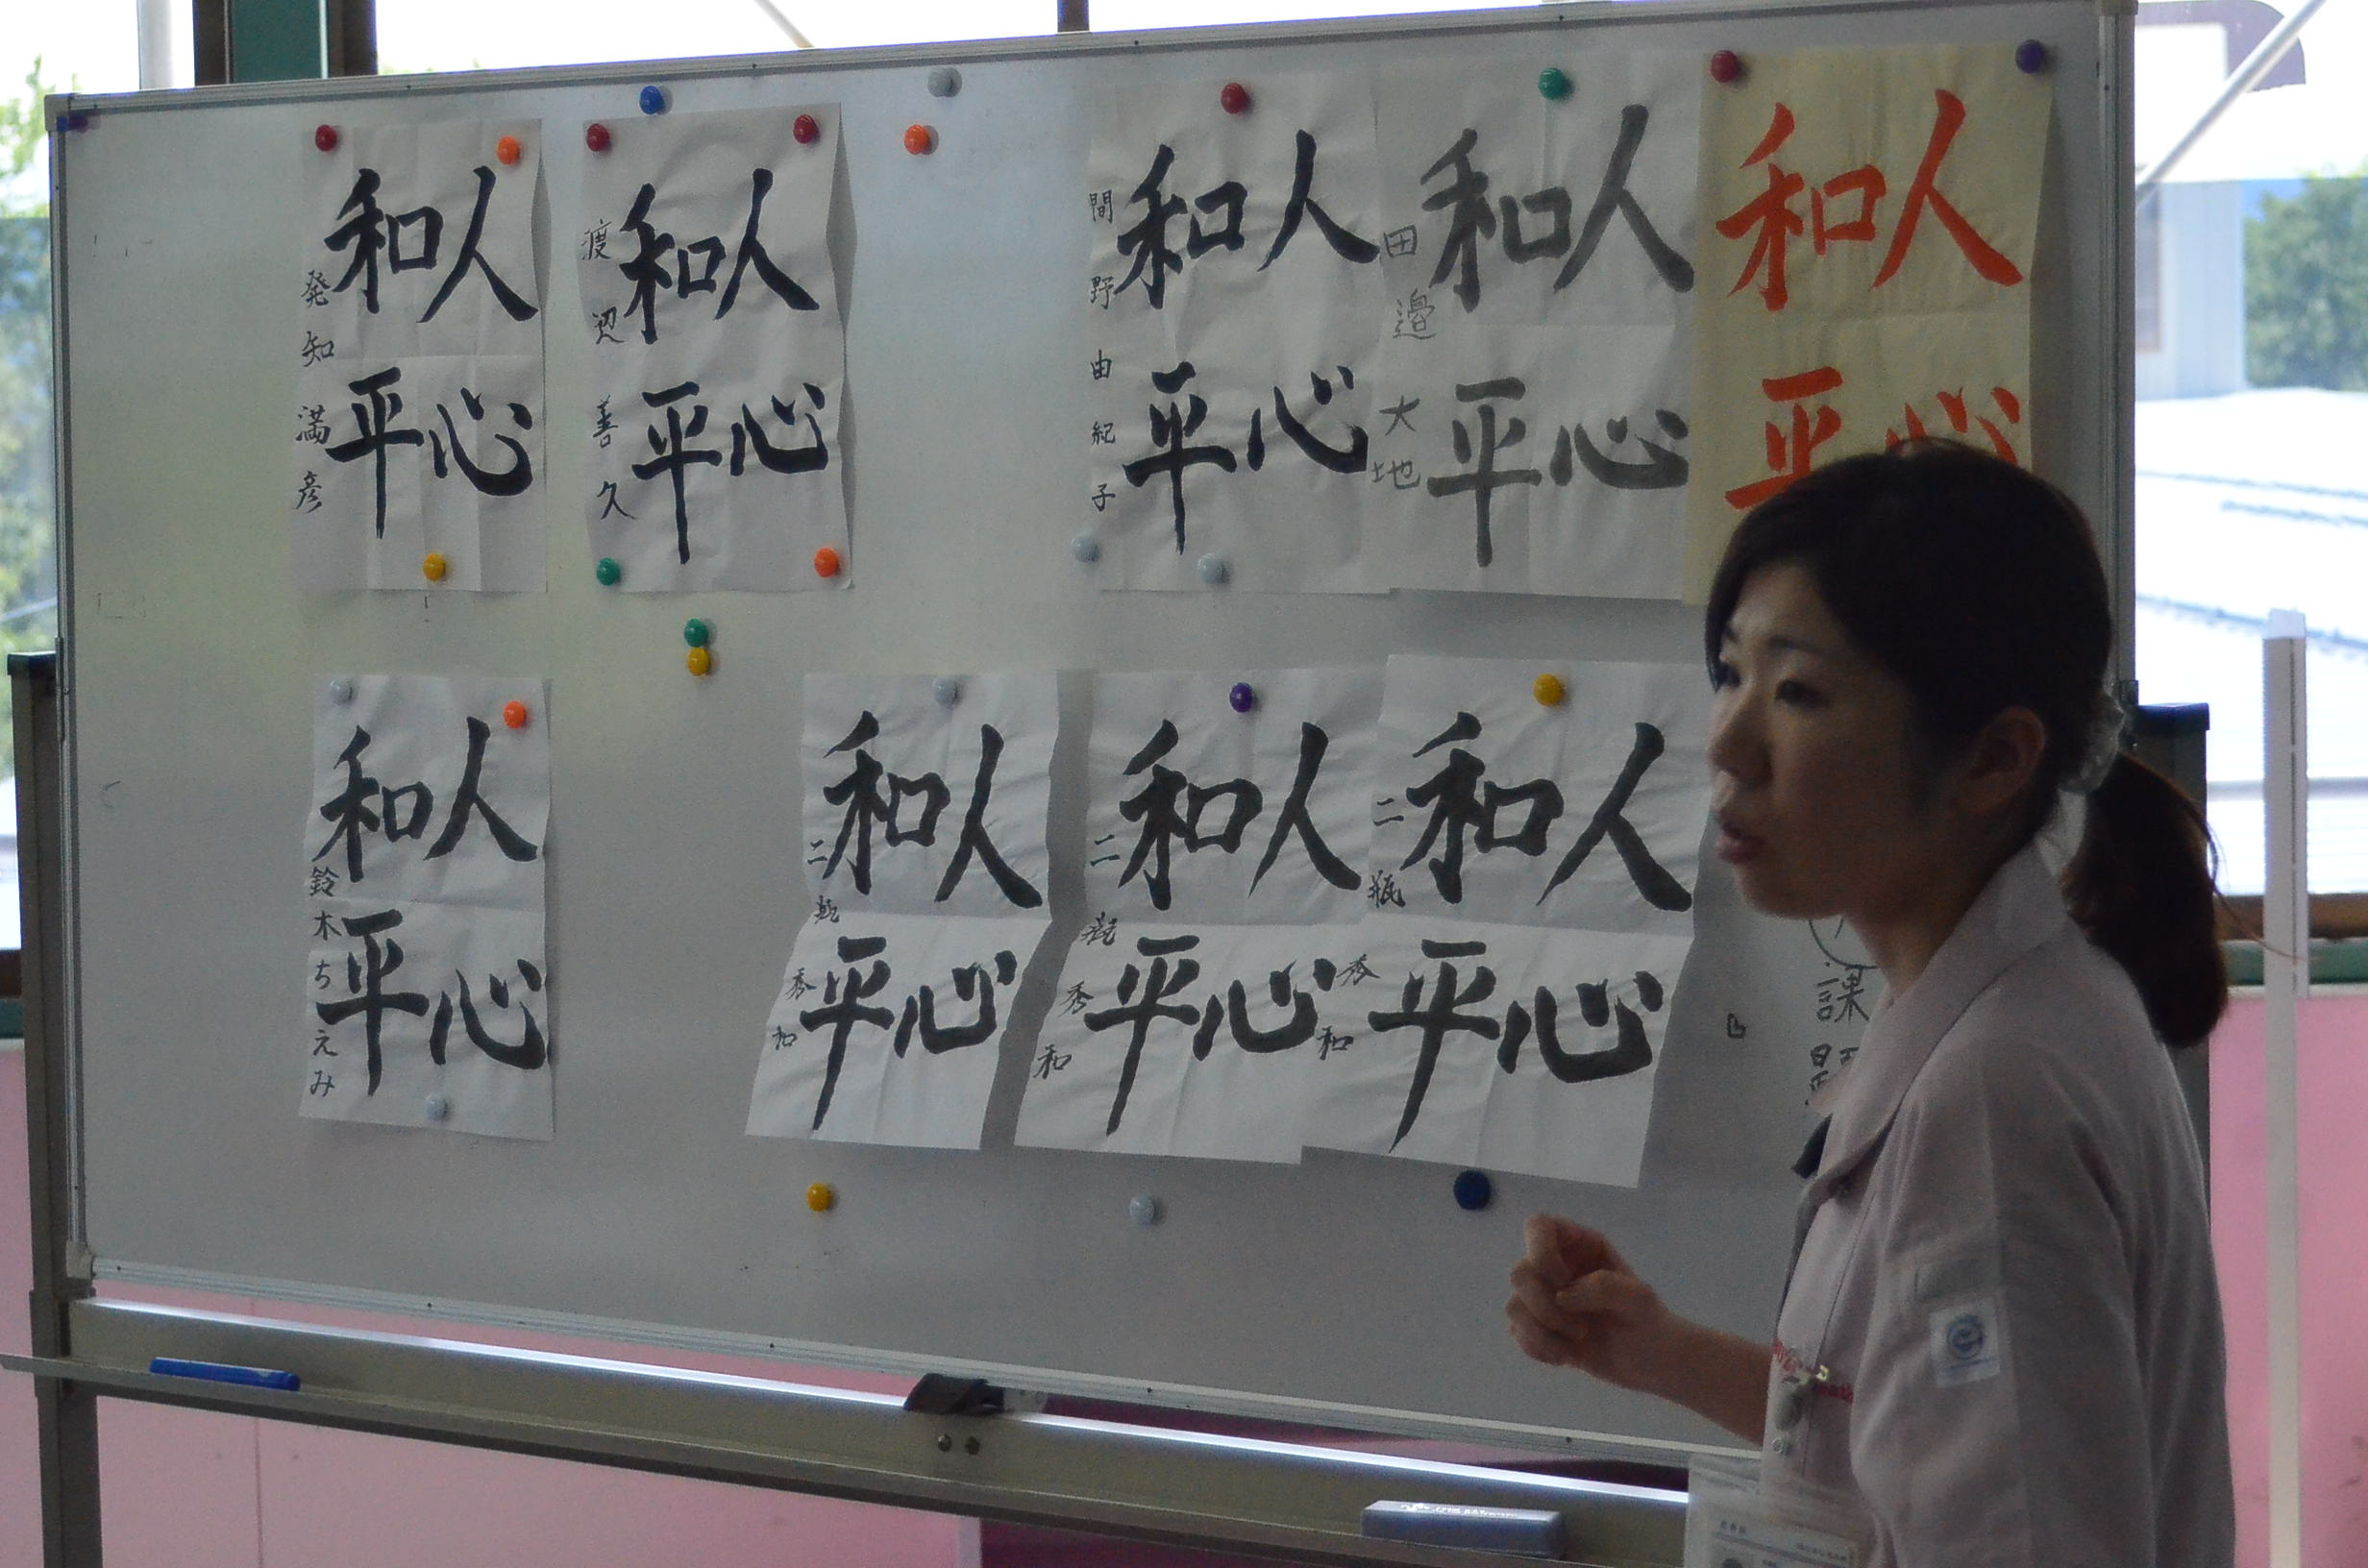 人心
和平
人心
和平
田邉大地
人心
和平
間野由紀子
人心
和平
渡辺善久
人心
和平
発知満彦
課題
人心
和平
二瓶秀和
人心
和平
二瓶秀和
人心
和平
二瓶秀和
人心
和平
鈴木ちえみ